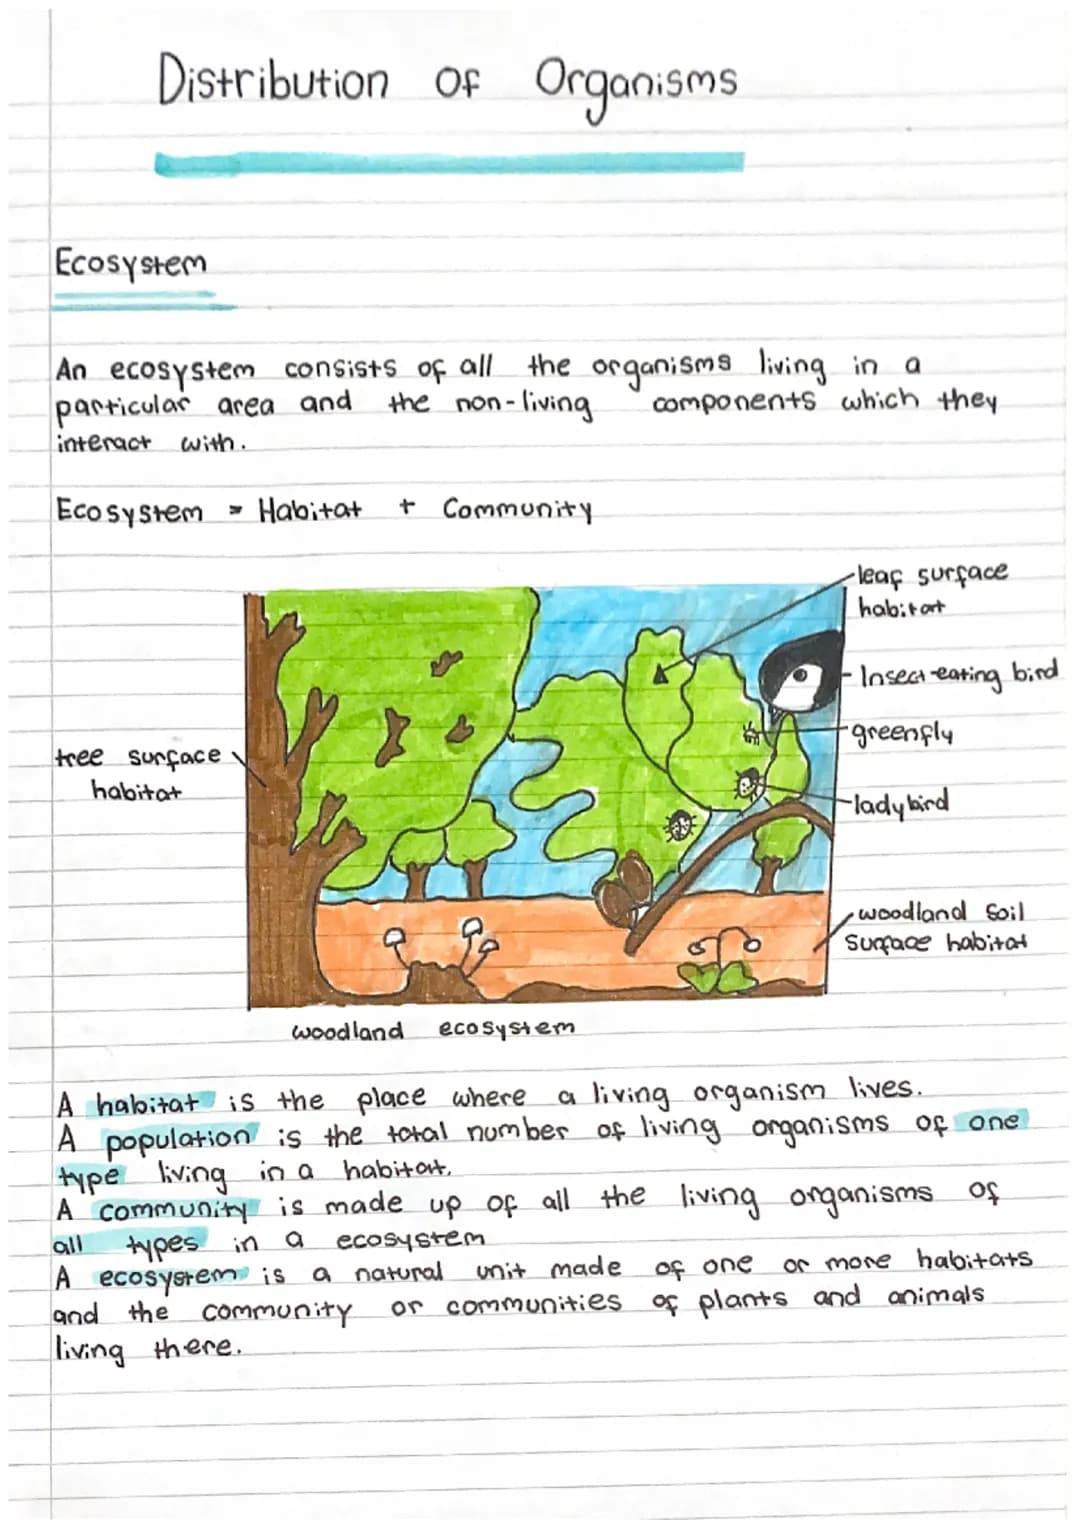 Distribution of Organisms
Ecosystem
An ecosystem consists of all the organisms living in a
particular area and the non-living components which they
interact with.
Ecosystem = Habitat + Community
leaf surface
habitat
Insect-eating bird
greenfly
tree surface
habitat
ladybird
woodland soil
surface habitat
woodland ecosystem
A habitat is the place where a living organism lives.
A population is the total number of living organisms of one
type living in a habitat.
A community is made up of all the living organisms of
all types in a ecosystem
A ecosystem is a natural unit made of one or more habitats
and the community or communities of plants and animals
living there.